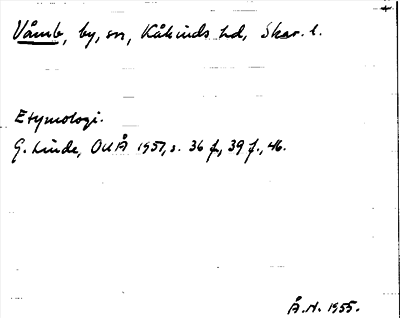 Våmb, by, sn, Kåkinds hd, Skar. l.
Etymologi.
G. Linde, OUÅ 1951, s. 36 f., 39 f., 46.
Å.N. 1955.